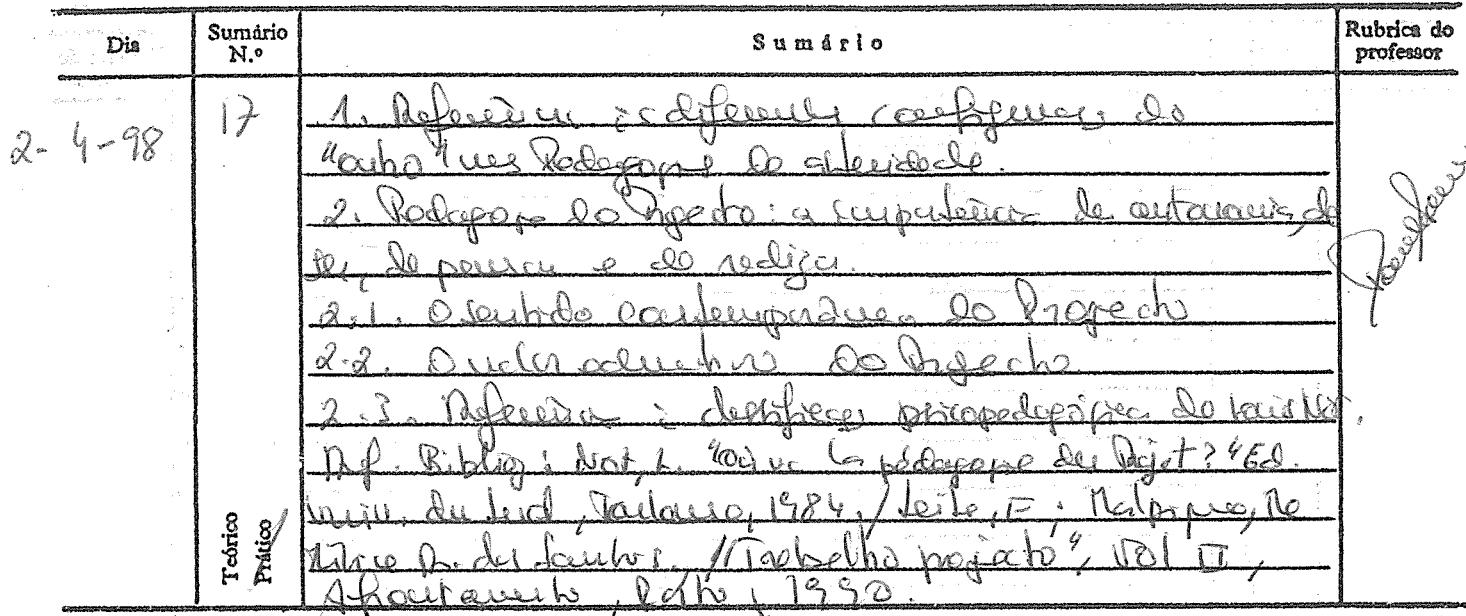 Dia
Sumário N.º
Sumário
Rubrica do professor
2-4-98
17
1. Referência às diferentes configurações do
"outro" nas Pedagogias da alteridade.
2. Pedagogia do Projecto: a competência de autonomia, de
ser, de pensar e de realizar.
2.1. O sentido contemporâneo do Projecto
2.2. O valor educativo do Projecto
2.3. Referência à classificação psicopedagógica de Louis Not.
Ref. Bibliog: Not, L. "Où va la pédagogie du Projet?" Ed.
Univ. du Sud, Toulouse, 1984. / Leite, E; Malpique, M
Milice R. dos Santos. "Trabalho projecto", Vol II,
Afrontamento, Porto, 1990.
Teórico
Prático